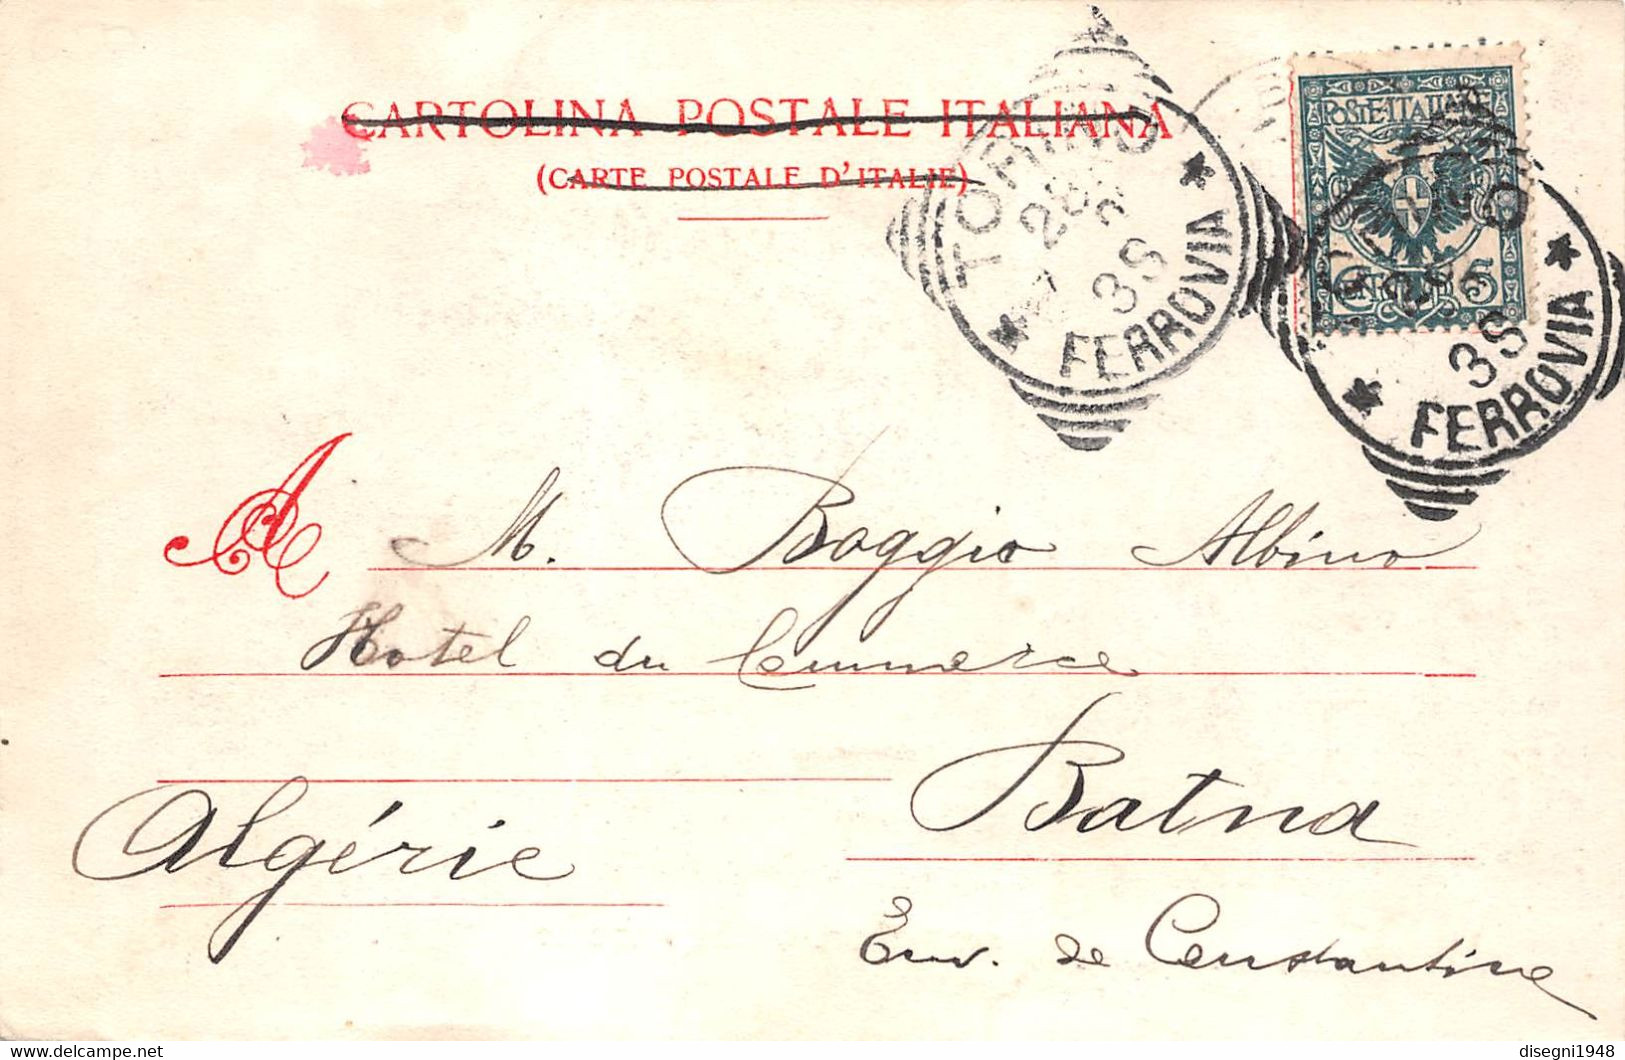 CARTOLINA POSTALE ITALIANA
(CARTE POSTALE D'ITALIE)
POSTE·ITALIANE
CENT. 5
TORINO
28
3S
FERROVIA
TORINO
3S
FERROVIA
A M. Boggio Albino
Hotel du Commerce
Batna
Algérie
Env. de Constantine
disegni1948